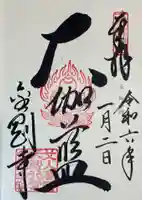 奉拝
令和六年
一月二日
大伽藍
金剛寺